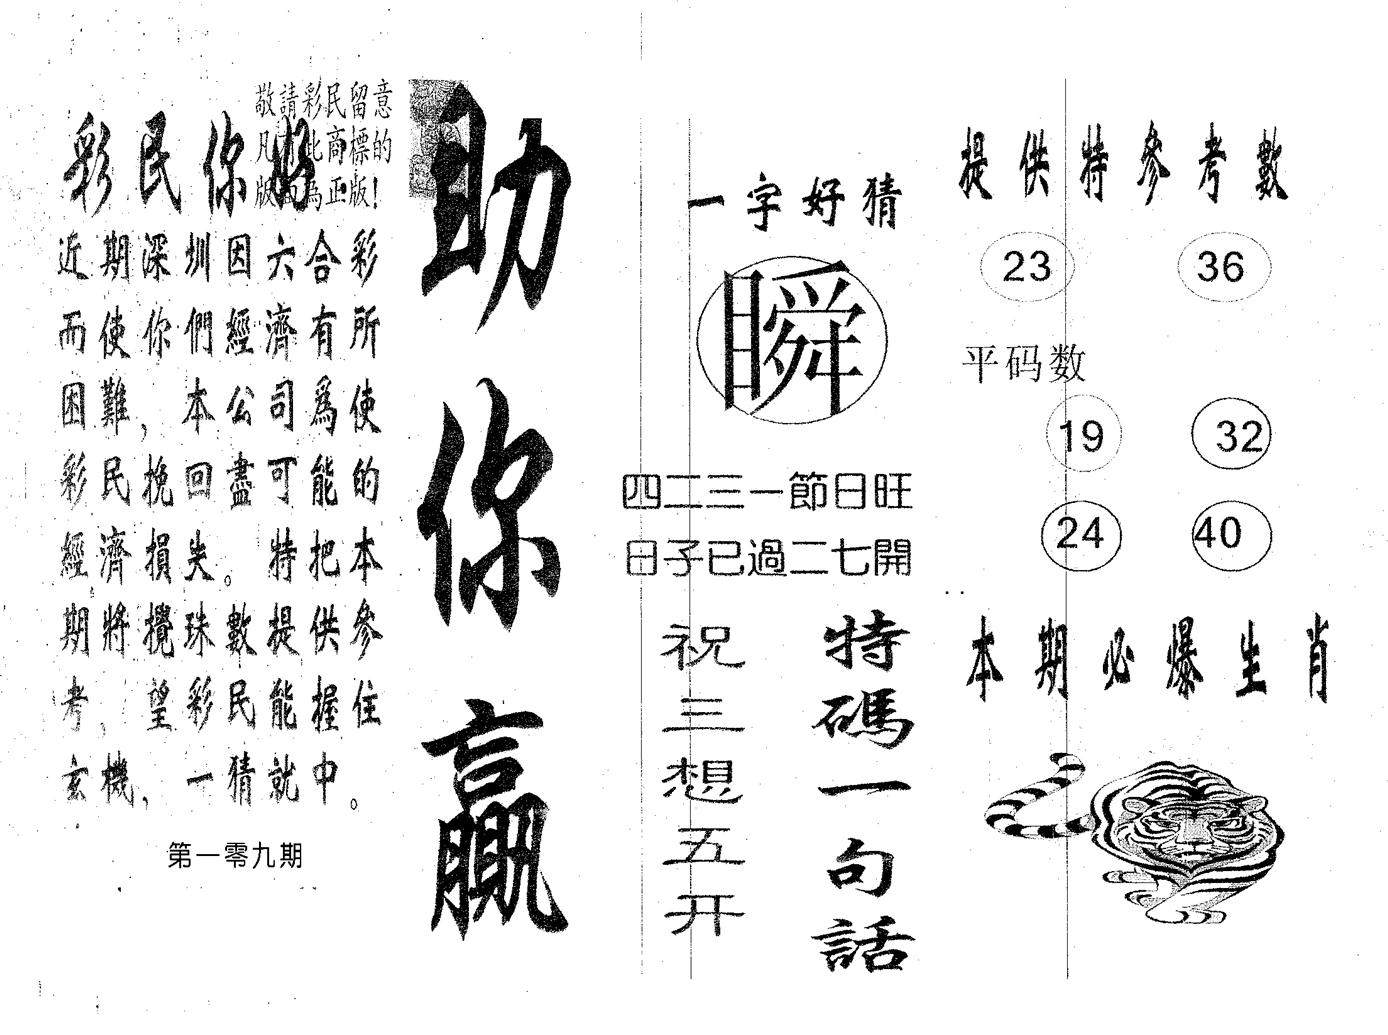 敬請彩民留意
凡有此商標的
版面為正版!
彩民你好
近期深圳因六合彩
而使你們經濟有所
困難，本公司爲使
彩民挽回盡可能的
經濟損失。特把本
期將攪珠數提供參
考，望彩民能握住
玄機，一猜就中。
第一零九期
助你贏
一字好猜
瞬
四二三一節日旺
日子已過二七開
特碼一句話
祝三想五开
提供特參考數
23 36
平码数
19 32
24 40
本期必爆生肖